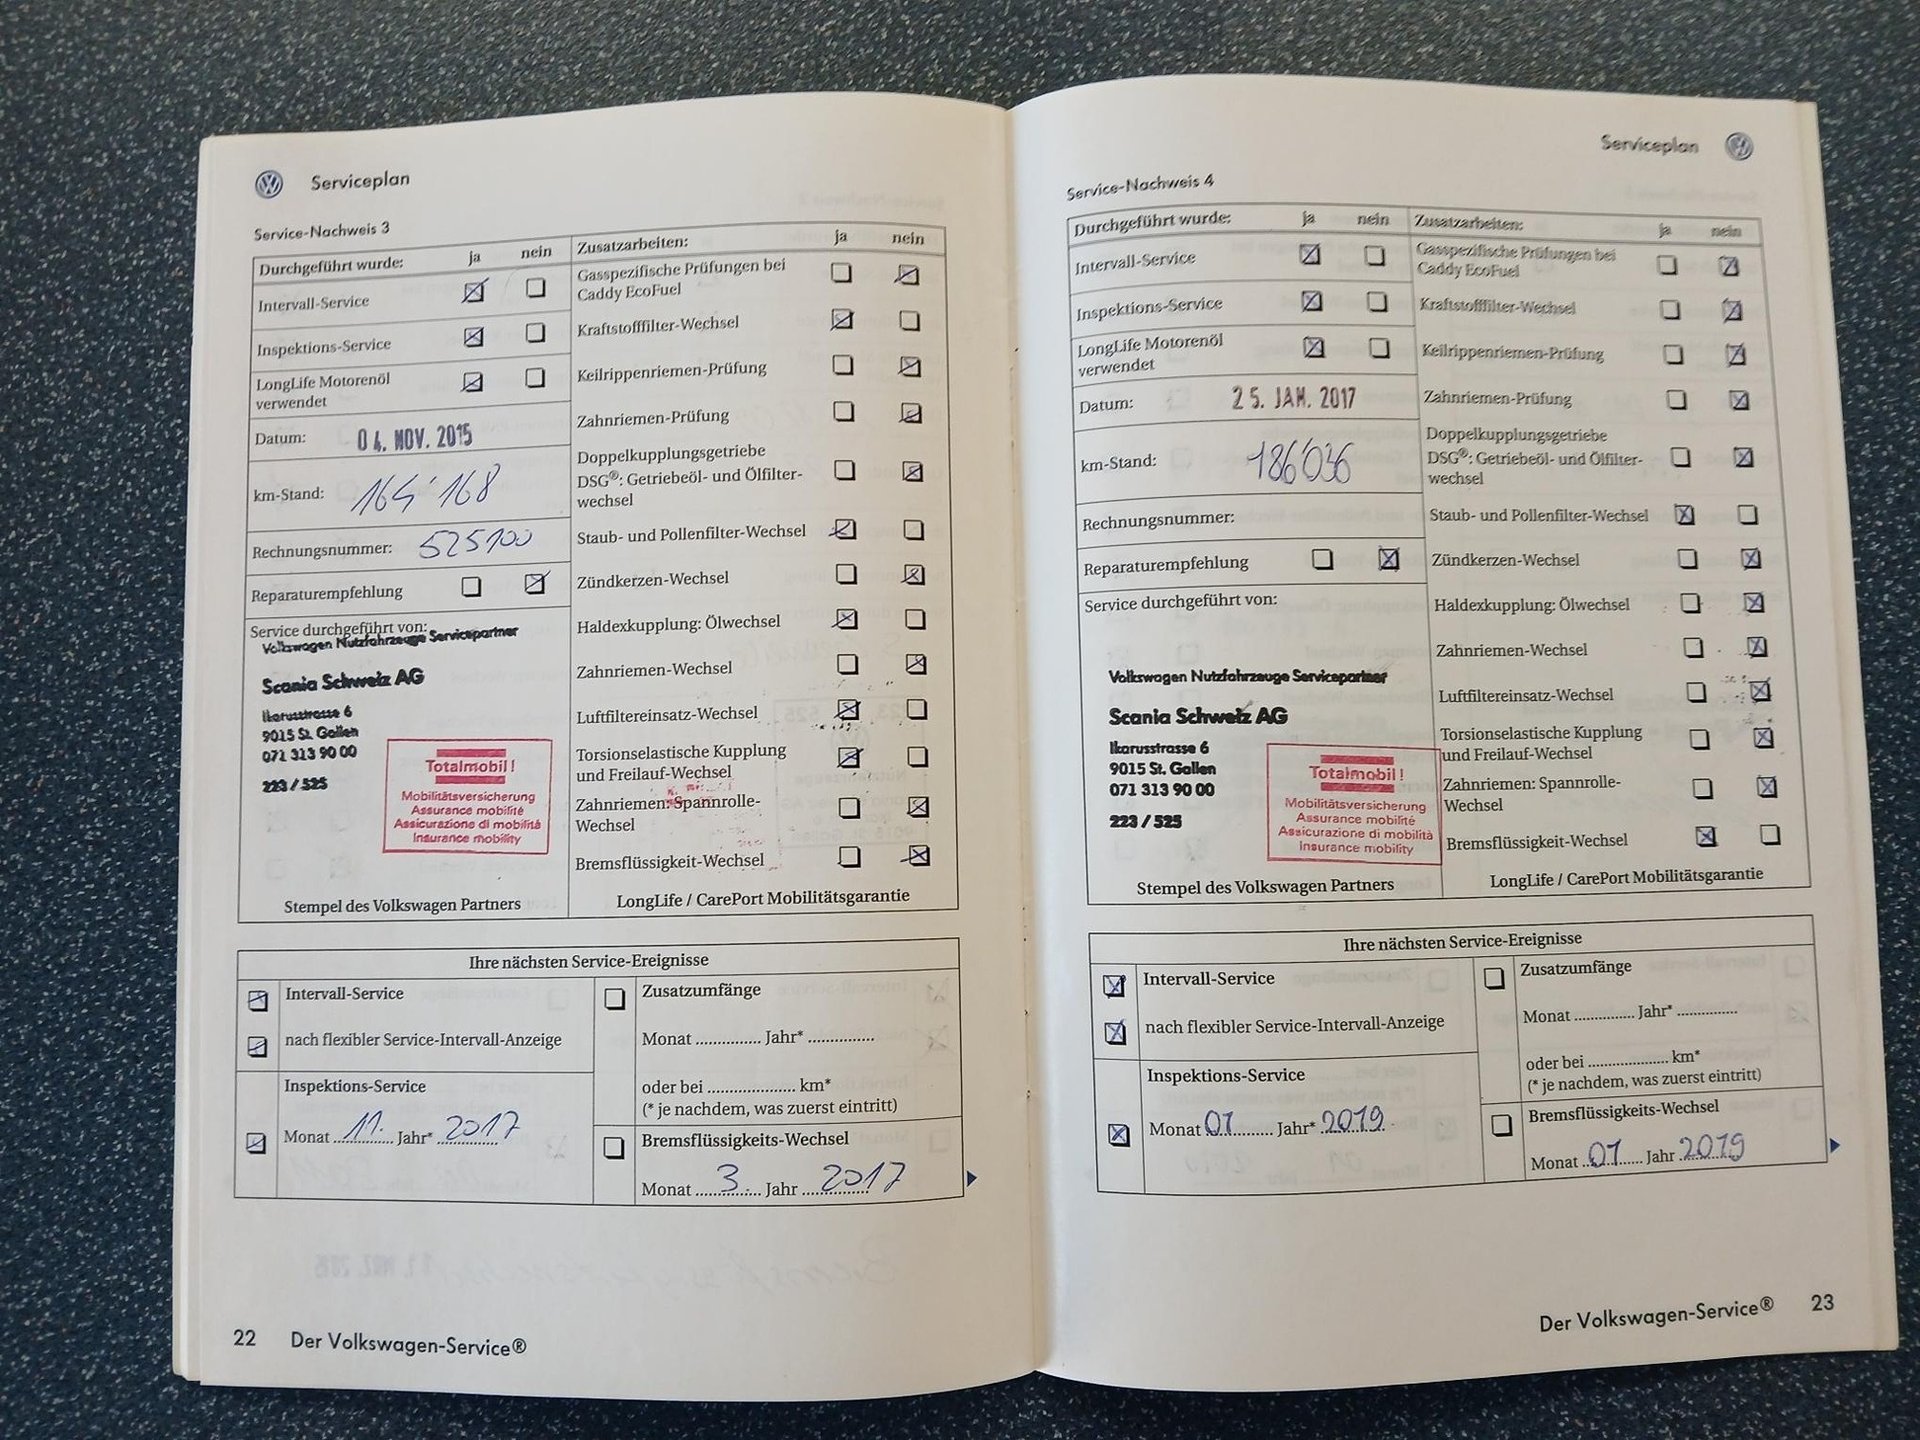 Serviceplan
Service-Nachweis 3
Durchgeführt wurde: ja nein
Intervall-Service
Inspektions-Service
LongLife Motorenöl
verwendet
Datum: 04. NOV. 2015
km-Stand: 164'168
Rechnungsnummer: 525100
Reparaturempfehlung
Service durchgeführt von:
Volkswagen Nutzfahrzeuge Servicepartner
Scania Schweiz AG
Ikarusstrasse 6
9015 St. Gallen
071 313 90 00
223 / 525
Totalmobil!
Mobilitätsversicherung
Assurance mobilité
Assicurazione di mobilità
Insurance mobility
Stempel des Volkswagen Partners
Zusatzarbeiten: ja nein
Gasspezifische Prüfungen bei
Caddy EcoFuel
Kraftstofffilter-Wechsel
Keilrippenriemen-Prüfung
Zahnriemen-Prüfung
Doppelkupplungsgetriebe
DSG®: Getriebeöl- und Ölfilter-
wechsel
Staub- und Pollenfilter-Wechsel
Zündkerzen-Wechsel
Haldexkupplung: Ölwechsel
Zahnriemen-Wechsel
Luftfiltereinsatz-Wechsel
Torsionselastische Kupplung
und Freilauf-Wechsel
Zahnriemen: Spannrolle-
Wechsel
Bremsflüssigkeit-Wechsel
LongLife / CarePort Mobilitätsgarantie
Ihre nächsten Service-Ereignisse
Intervall-Service
nach flexibler Service-Intervall-Anzeige
Inspektions-Service
Monat 11. Jahr* 2017
Zusatzumfänge
Monat .............. Jahr* ..............
oder bei .................... km*
(* je nachdem, was zuerst eintritt)
Bremsflüssigkeits-Wechsel
Monat 3. Jahr 2017
22 Der Volkswagen-Service®
Serviceplan
Service-Nachweis 4
Durchgeführt wurde: ja nein
Intervall-Service
Inspektions-Service
LongLife Motorenöl
verwendet
Datum: 25. JAN. 2017
km-Stand: 186036
Rechnungsnummer:
Reparaturempfehlung
Service durchgeführt von:
Volkswagen Nutzfahrzeuge Servicepartner
Scania Schweiz AG
Ikarusstrasse 6
9015 St. Gallen
071 313 90 00
223 / 525
Totalmobil!
Mobilitätsversicherung
Assurance mobilité
Assicurazione di mobilità
Insurance mobility
Stempel des Volkswagen Partners
Zusatzarbeiten: ja nein
Gasspezifische Prüfungen bei
Caddy EcoFuel
Kraftstofffilter-Wechsel
Keilrippenriemen-Prüfung
Zahnriemen-Prüfung
Doppelkupplungsgetriebe
DSG®: Getriebeöl- und Ölfilter-
wechsel
Staub- und Pollenfilter-Wechsel
Zündkerzen-Wechsel
Haldexkupplung: Ölwechsel
Zahnriemen-Wechsel
Luftfiltereinsatz-Wechsel
Torsionselastische Kupplung
und Freilauf-Wechsel
Zahnriemen: Spannrolle-
Wechsel
Bremsflüssigkeit-Wechsel
LongLife / CarePort Mobilitätsgarantie
Ihre nächsten Service-Ereignisse
Intervall-Service
nach flexibler Service-Intervall-Anzeige
Inspektions-Service
Monat 01 Jahr* 2019
Zusatzumfänge
Monat .............. Jahr* ..............
oder bei .................... km*
(* je nachdem, was zuerst eintritt)
Bremsflüssigkeits-Wechsel
Monat 01 Jahr 2019
Der Volkswagen-Service® 23